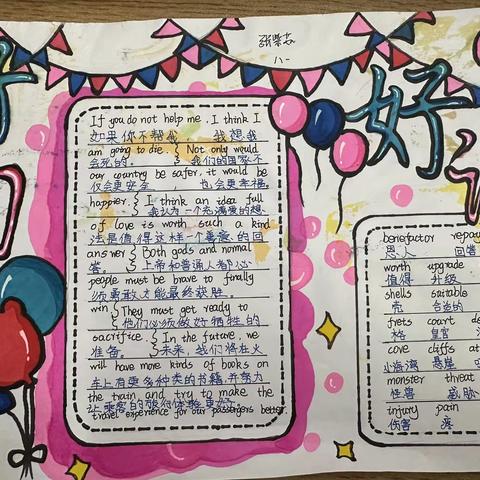 张紫芯
八一
好
If you do not help me, I think I
如果你不帮我 我想我
am going to die. Not only would
会死的。 我们的国家不
our country be safer, it would be
仅会更安全, 也会更幸福。
happier. I think an idea full
我认为一个充满爱的想
of love is worth such a kind
法是值得这样一个善意的回
answer. Both gods and normal
答。上帝和普通人都必
people must be brave to finally
须勇敢才能最终获胜。
win. They must get ready to
他们必须做好牺牲的
sacrifice. In the future, we
准备。未来,我们将在火
will have more kinds of books on
车上有更多种类的书籍,并努力
the train and try to make the
让乘客的旅行体验更好
travel experience for our passengers better.
benefactor repay
恩人 回答
worth upgrade
值得 升级
shells suitable
壳 合适的
frets court de
格 皇宫
cove cliffs at
小海湾 悬崖
monster threat
怪兽 威胁
injury pain
伤害 疼